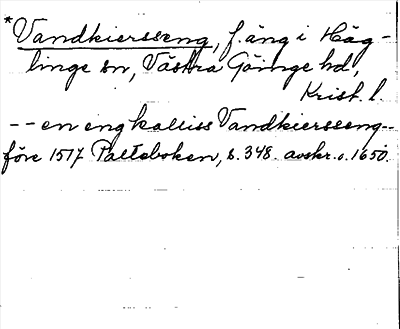 *Vandkiersseng, f. äng i Häg-
linge sn, Västra Göinge hd,
Krist. l.
-- en eng kalliss Vandkiersseng --
före 1517 Palteboken, s. 348. avskr. o. 1650.